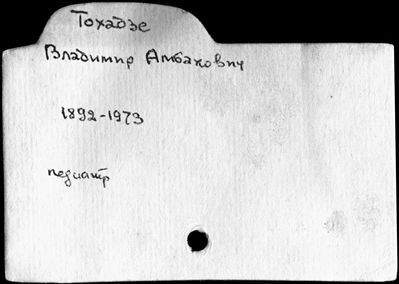 Тохадзе
Владимир Амбакович
1892-1973
педиатр